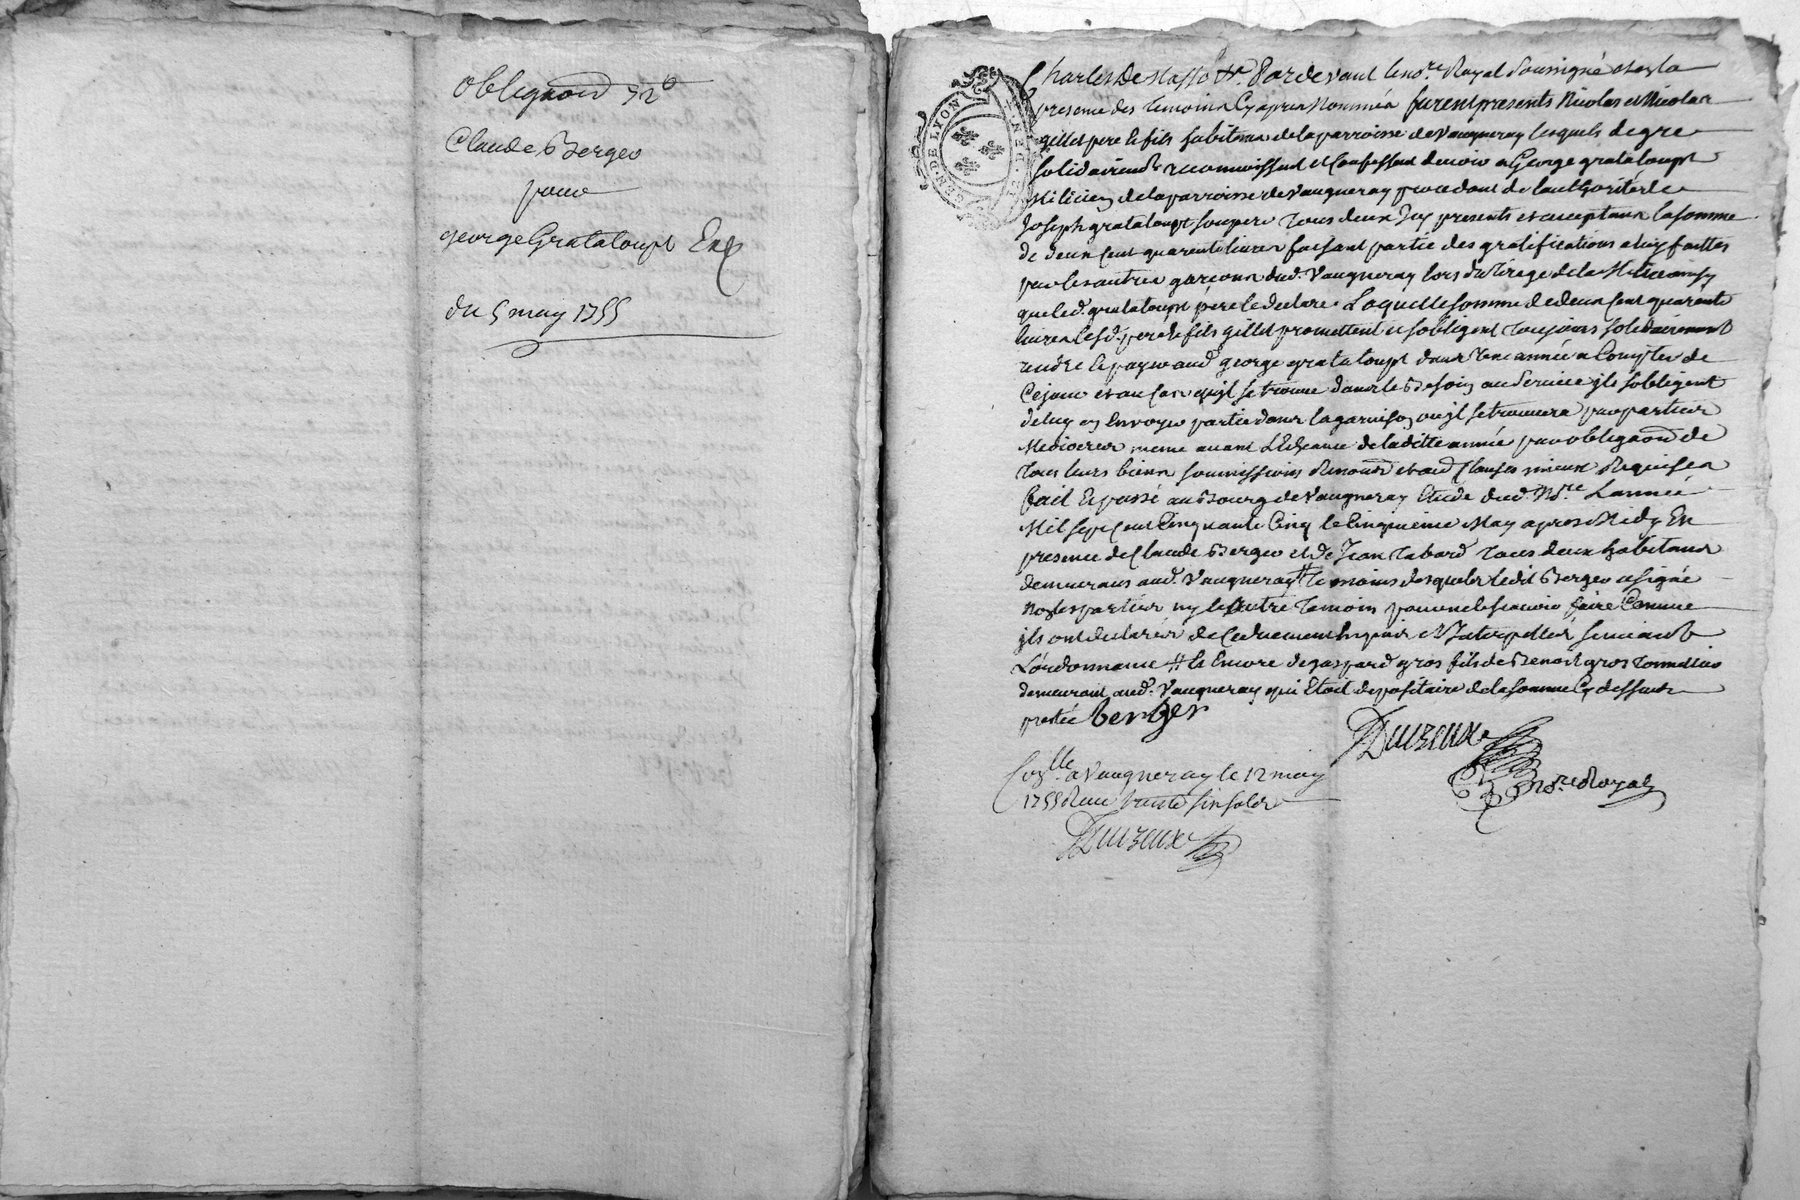 Obligaõn 72#
Claude Berger
pour
george Grataloup Exp
du 5 may 1755
GEN. DE LYON
Charles de Masso &c. Pardevant le no.re Royal Soussigné et en la
presence des temoins Cy apres nommés furent presents Nicolas et Nicolas
gillet pere et fils habitans de la parroisse de Vaugneray lesquels de gre
solidairem.t reconnoissent et Confessent devoir a George grataloup
Milicien de la parroisse de Vaugneray procedant de l'authorité de
Joseph grataloup son pere tous deux Icy presents et acceptans la somme
de deux Cent quarente livres faisant partie des gratifications a luy faittes
par les autres garçons dud. Vaugneray lors du tirage de la Milice ainsy
que led. grataloup père le declare. Laquelle somme de deux Cent quarente
livres lesd. pere et fils gillet promettent et sobligent toujours solidairement
rendre et payer aud. george grataloup dans une année a Compter de
Ce jour et au Cas quil se trouve dans le Besoin au Service ils sobligent
de luy en Envoyer partie dans la garnison ou il se trouvera par parties
Mediocres meme avant L'Echeance de laditte année par obligaõn de
tous leurs biens soumissions Renons et aud. Clauses mieux Requises
fait et passé au Bourg de Vaugneray Etude dud. No.re Lannée
Mil sept Cent Cinquante Cinq le Cinquieme May apres Midy En
presence de Claude Berger et de Jean tabard tous deux habitans
demeurans aud. Vaugneray # temoins desquels ledit Berger a signé
non les parties ny l'autre temoin pour ne le scavoir faire Comme
ils ont declarés de Ce duement Enquis et Interpellés suivant
L'ordonnance # et Encore de gaspard gros fils de Benoit gros tonnellier
demeurant aud. Vaugneray qui Etoit depositaire de la somme Cy dessus
pretée berger
Duizeux
No.re Royal
Con.lle a Vaugneray le 12 may
1755 Recu trente six sols
Duizeux